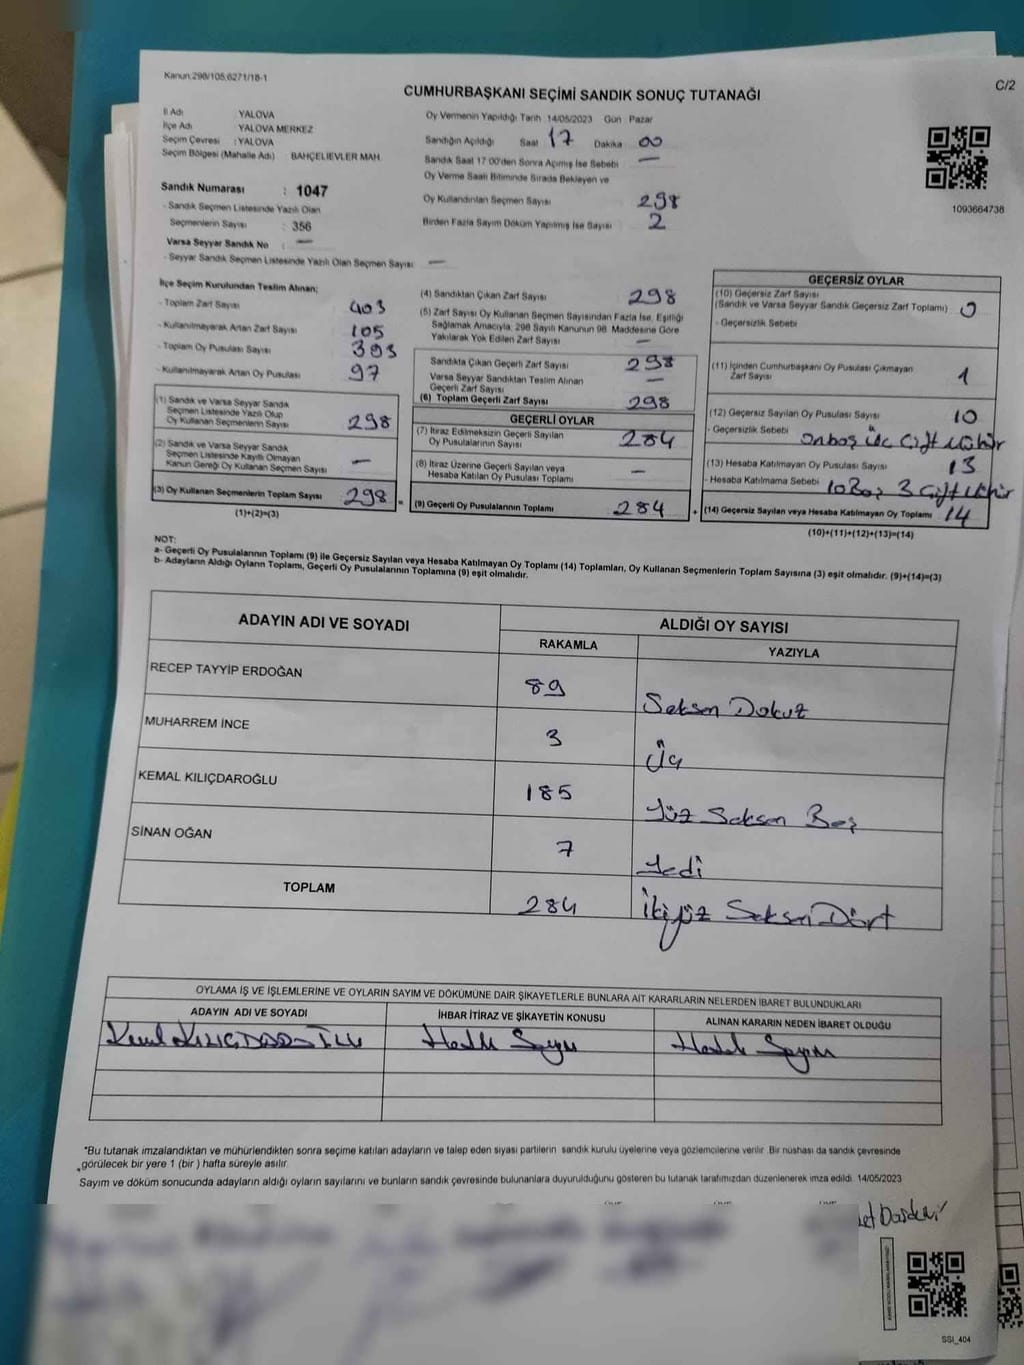 Kanun:298/105,6271/18-1
C/2
CUMHURBAŞKANI SEÇİMİ SANDIK SONUÇ TUTANAĞI
İl Adı YALOVA
İlçe Adı YALOVA MERKEZ
Seçim Çevresi : YALOVA
Seçim Bölgesi (Mahalle Adı) BAHÇELİEVLER MAH.
Sandık Numarası : 1047
- Sandık Seçmen Listesinde Yazılı Olan
Seçmenlerin Sayısı : 356
Varsa Seyyar Sandık No : —
- Seyyar Sandık Seçmen Listesinde Yazılı Olan Seçmen Sayısı : —
Oy Vermenin Yapıldığı Tarih 14/05/2023 Gün : Pazar
Sandığın Açıldığı Saat 17 Dakika 00
Sandık Saat 17:00'den Sonra Açılmış İse Sebebi —
Oy Verme Saati Bitiminde Sırada Bekleyen ve
Oy Kullandırılan Seçmen Sayısı 298
Birden Fazla Sayım Döküm Yapılmış İse Sayısı 2
1093664738
İlçe Seçim Kurulundan Teslim Alınan;
- Toplam Zarf Sayısı 403
- Kullanılmayarak Artan Zarf Sayısı 105
- Toplam Oy Pusulası Sayısı 393
- Kullanılmayarak Artan Oy Pusulası 97
(1) Sandık ve Varsa Seyyar Sandık
Seçmen Listesinde Yazılı Olup
Oy Kullanan Seçmenlerin Sayısı 298
(2) Sandık ve Varsa Seyyar Sandık
Seçmen Listesinde Kayıtlı Olmayan
Kanun Gereği Oy Kullanan Seçmen Sayısı —
(3) Oy Kullanan Seçmenlerin Toplam Sayısı 298 =
(1)+(2)=(3)
(4) Sandıktan Çıkan Zarf Sayısı 298
(5) Zarf Sayısı Oy Kullanan Seçmen Sayısından Fazla İse, Eşitliği
Sağlamak Amacıyla, 298 Sayılı Kanunun 98. Maddesine Göre
Yakılarak Yok Edilen Zarf Sayısı —
Sandıkta Çıkan Geçerli Zarf Sayısı 298
Varsa Seyyar Sandıktan Teslim Alınan
Geçerli Zarf Sayısı —
(6) Toplam Geçerli Zarf Sayısı 298
GEÇERLİ OYLAR
(7) İtiraz Edilmeksizin Geçerli Sayılan
Oy Pusulalarının Sayısı 284
(8) İtiraz Üzerine Geçerli Sayılan veya
Hesaba Katılan Oy Pusulası Toplamı —
(9) Geçerli Oy Pusulalarının Toplamı 284 +
GEÇERSİZ OYLAR
(10) Geçersiz Zarf Sayısı
(Sandık ve Varsa Seyyar Sandık Geçersiz Zarf Toplamı) 0
- Geçersizlik Sebebi
(11) İçinden Cumhurbaşkanı Oy Pusulası Çıkmayan
Zarf Sayısı 1
(12) Geçersiz Sayılan Oy Pusulası Sayısı 10
- Geçersizlik Sebebi onboş üç Çift Mühür
(13) Hesaba Katılmayan Oy Pusulası Sayısı 13
- Hesaba Katılmama Sebebi 10 Boş 3 Çift Mühür
(14) Geçersiz Sayılan veya Hesaba Katılmayan Oy Toplamı 14
(10)+(11)+(12)+(13)=(14)
NOT:
a- Geçerli Oy Pusulalarının Toplamı (9) ile Geçersiz Sayılan veya Hesaba Katılmayan Oy Toplamı (14) Toplamları, Oy Kullanan Seçmenlerin Toplam Sayısına (3) eşit olmalıdır. (9)+(14)=(3)
b- Adayların Aldığı Oyların Toplamı, Geçerli Oy Pusulalarının Toplamına (9) eşit olmalıdır.
ADAYIN ADI VE SOYADI ALDIĞI OY SAYISI
RAKAMLA YAZIYLA
RECEP TAYYİP ERDOĞAN 89 Seksen Dokuz
MUHARREM İNCE 3 Üç
KEMAL KILIÇDAROĞLU 185 Yüz Seksen Beş
SİNAN OĞAN 7 Yedi
TOPLAM 284 İkiyüz Seksen Dört
OYLAMA İŞ VE İŞLEMLERİNE VE OYLARIN SAYIM VE DÖKÜMÜNE DAİR ŞİKAYETLERLE BUNLARA AİT KARARLARIN NELERDEN İBARET BULUNDUKLARI
ADAYIN ADI VE SOYADI İHBAR İTİRAZ VE ŞİKAYETİN KONUSU ALINAN KARARIN NEDEN İBARET OLDUĞU
*Bu tutanak imzalandıktan ve mühürlendikten sonra seçime katılan adayların ve talep eden siyasi partilerin sandık kurulu üyelerine veya gözlemcilerine verilir. Bir nüshası da sandık çevresinde
görülecek bir yere 1 (bir ) hafta süreyle asılır.
Sayım ve döküm sonucunda adayların aldığı oyların sayılarını ve bunların sandık çevresinde bulunanlara duyurulduğunu gösteren bu tutanak tarafımızdan düzenlenerek imza edildi. 14/05/2023
SSI_404